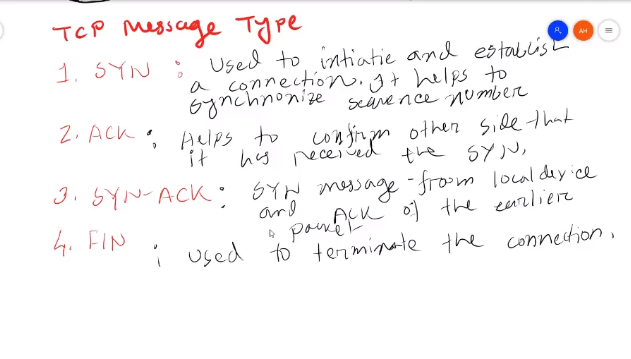 TCP Message Type
1. SYN : Used to intiatie and establish
a connection. It helps to
synchronize sequence number
2. ACK : Helps to confirm other side that
it has received the SYN.
3. SYN-ACK : SYN message from local device
and ACK of the earlier
packet
4. FIN : used to terminate the connection.
AH